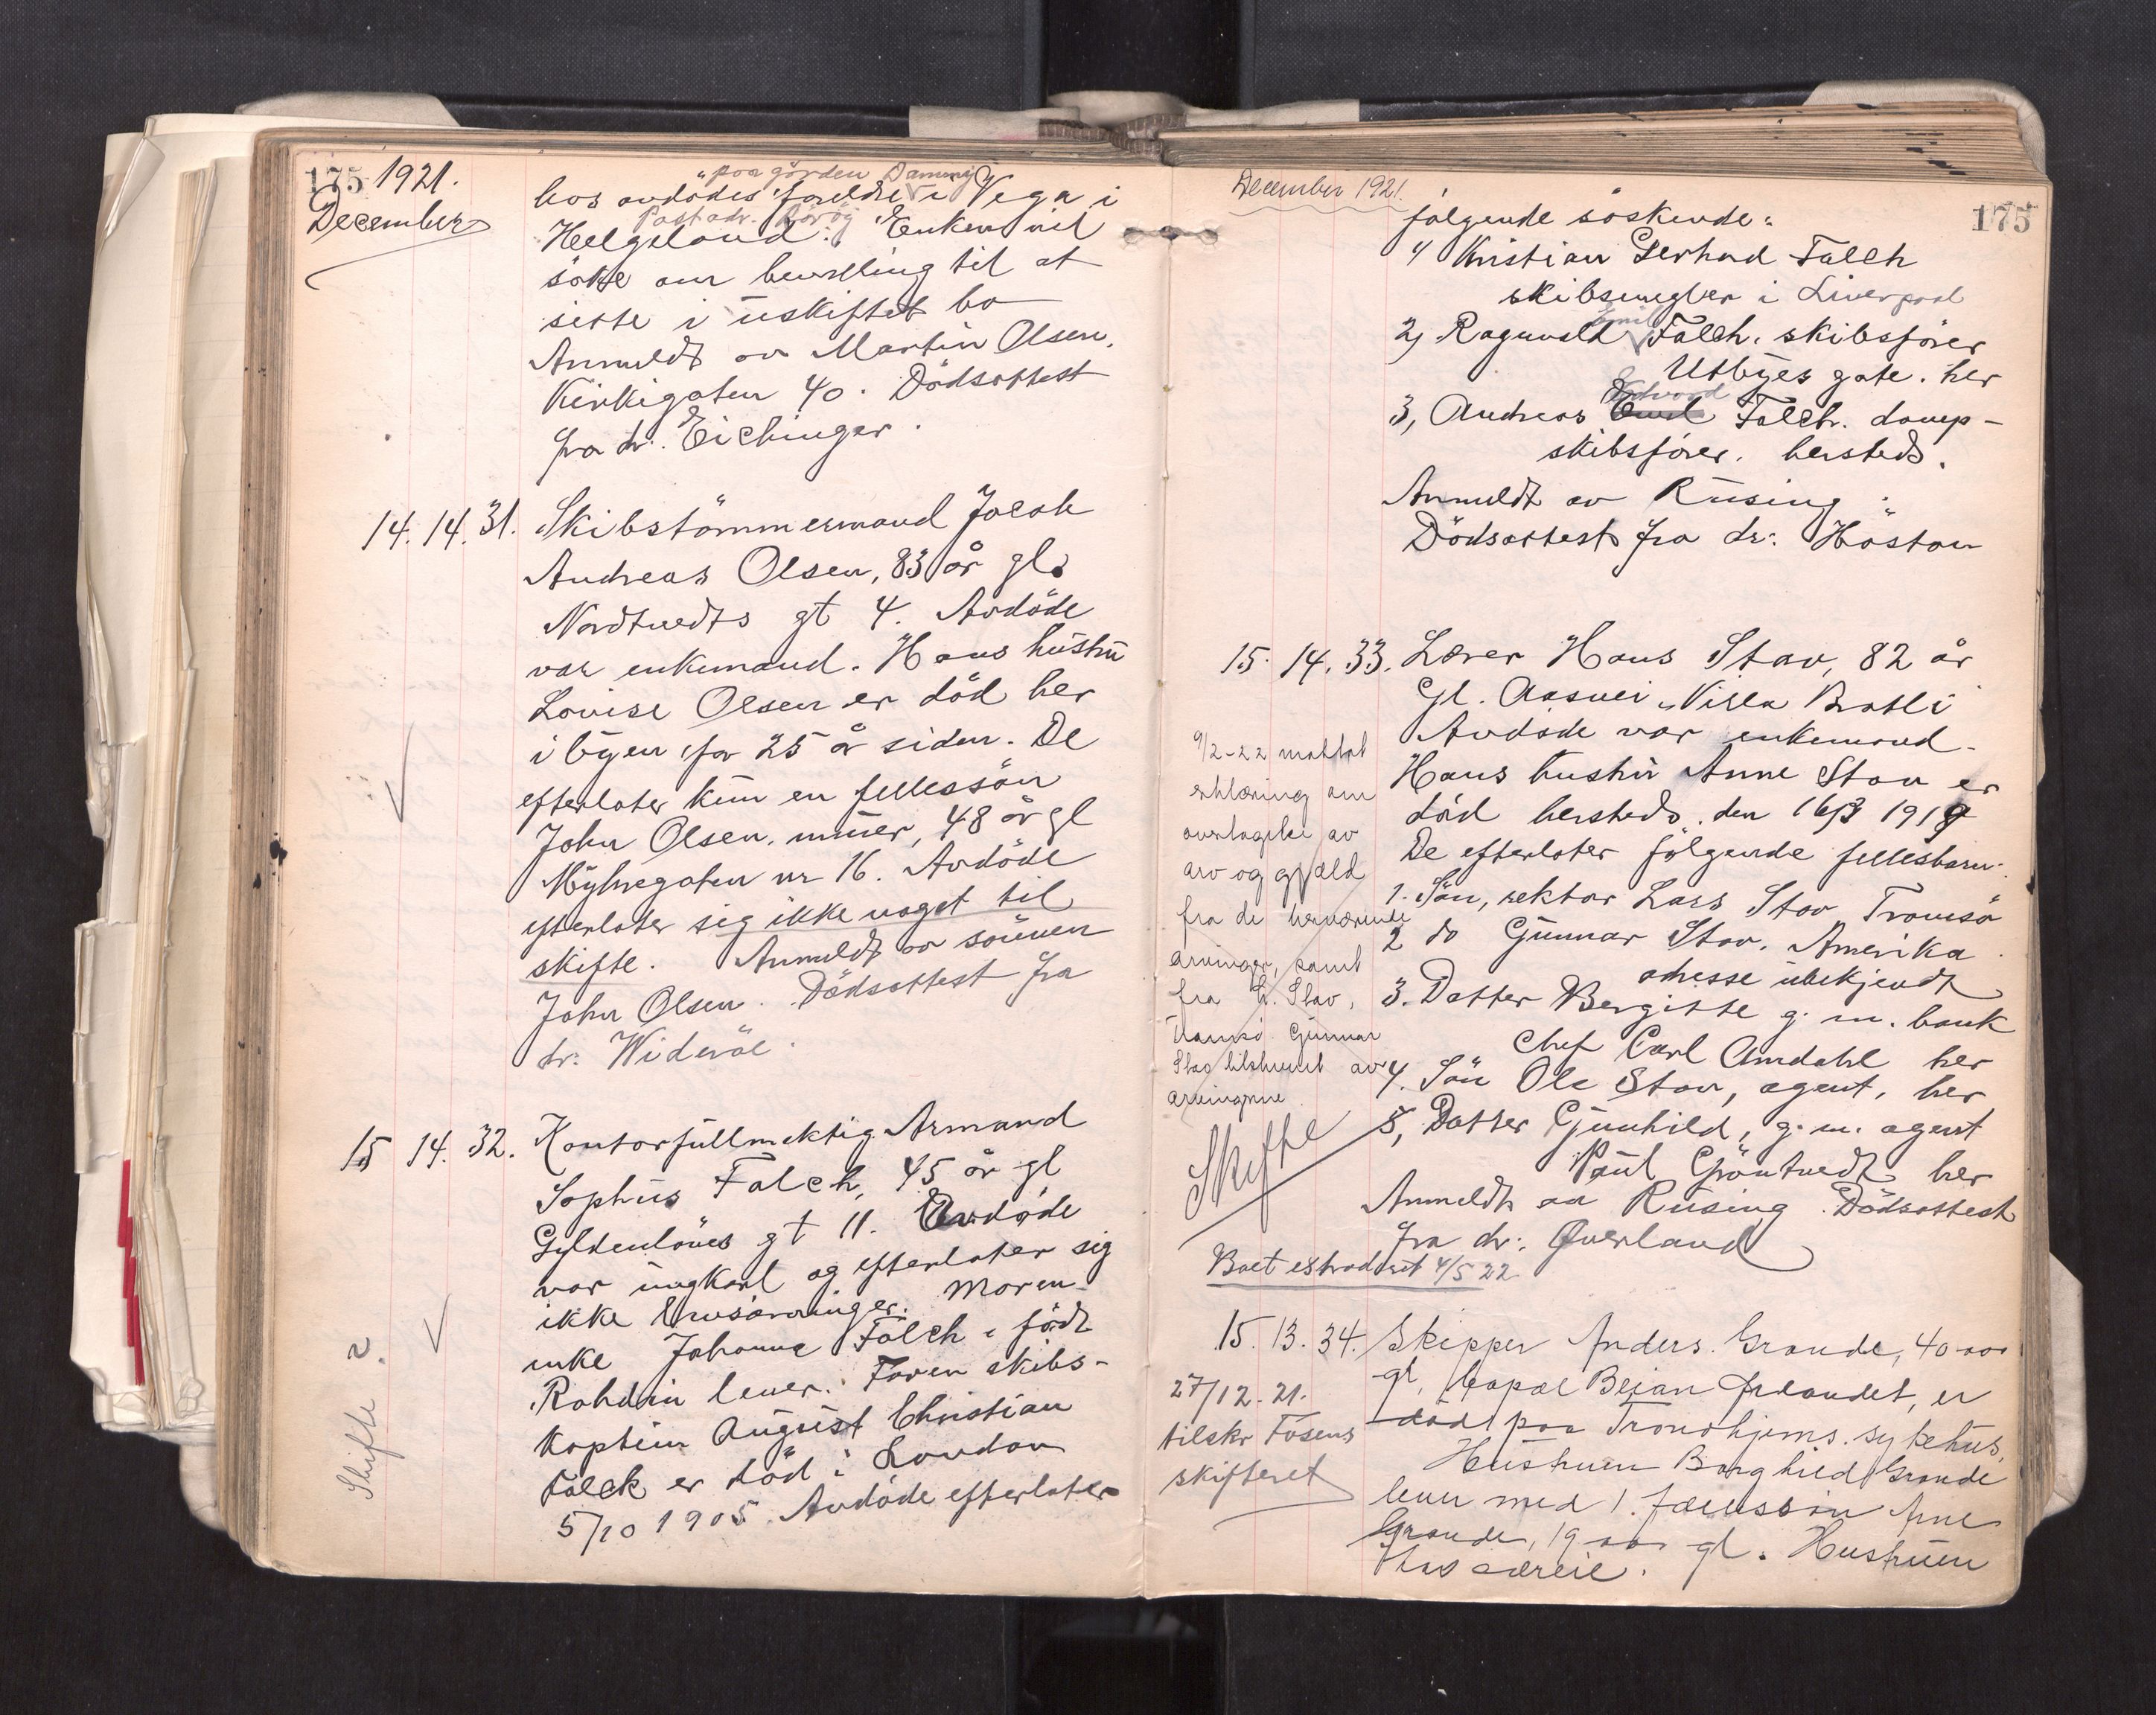 175 1921.
December
"paa gården Dammyr"
hos avdödes foreldre i Vega i
Postadr. Rörøy
Helgeland. Enken vil
söke om bevilling til at
sitte i uskiftet bo
Anmeldt av Martin Olsen,
Kirkegaten 40. Dödsattest
fra dr. Eichinger.
14. 14. 31. Skibstömmermand Jacob
Andreas Olsen, 83 år gl.
Nordtvedts gt 4. Avdöde
var enkemand. Hans hustru
Lovise Olsen er död her
i byen for 25 år siden. De
efterlater kun en fellessön
John Olsen, murer, 48 år gl
Myhregaten nr 16. Avdöde
efterlater sig ikke noget til
skifte. Anmeldt av sönnen
John Olsen. Dödsattest fra
dr. Wideröe.
15 14. 32. Kontorfullmektig Armand
Sophus Falch, 45 år gl
Gyldenlöves gt 11. Avdöde
var ungkarl og efterlater sig
ikke livsarvinger. Moren
enke Johanne Falch, født
Rohdin lever. Faren skibs-
kaptein August Christian
Falck er död i London
5/10 1905. Avdöde efterlater
Skifte 2.
December 1921.
175
følgende söskende:
1) Kristian Gerhard Falch
skibsmegler i Liverpool
Emil
2) Ragnvald Falch, skibsfører
Utbyes gate. her
Edvard
3, Andreas Emil Falch. damp-
skibsfører. hersteds.
Anmeldt av Rusing.
Dödsattest fra dr. Höstou
15. 14. 33. Lærer Hans Stav, 82 år
gl. Aasvei "Villa Bratli"
Avdøde var enkemand.
Hans hustru Anne Stav er
död hersteds. den 16/3 1919
De efterlater følgende fellesbarn:
1. Sön, rektor Lars Stav Tromsö
2 do Gunnar Stav. Amerika.
adresse ubekjendt
3. Datter Bergitte g. m. bank
chef Carl Amdahl her
4. Sön Ole Stav, agent, her
5, Datter Gunhild, g. m. agent
Paul Gröntvedt her
Anmeldt av Rusing. Dödsattest
fra dr. Qverland
9/2-22 mottat
erklæring om
overtagelse av
arv og gjæld
fra de herværende
arvinger, samt
fra L. Stav,
Tromsö Gunnar
Stav tilskrevet av
arvingerne
Skifte
Boet extradert 4/5 22
15. 13. 34. Skipper Anders Grande, 40 aar
gl, bopæl Beian Ørlandet, er
død paa Trondhjems sykehus.
Hustruen Borghild Grande
lever med 1 fællessön Arne
Grande, 19 aar gl. Hustruen
har særeie.
27/12. 21.
tilskr Fosens
skifteret